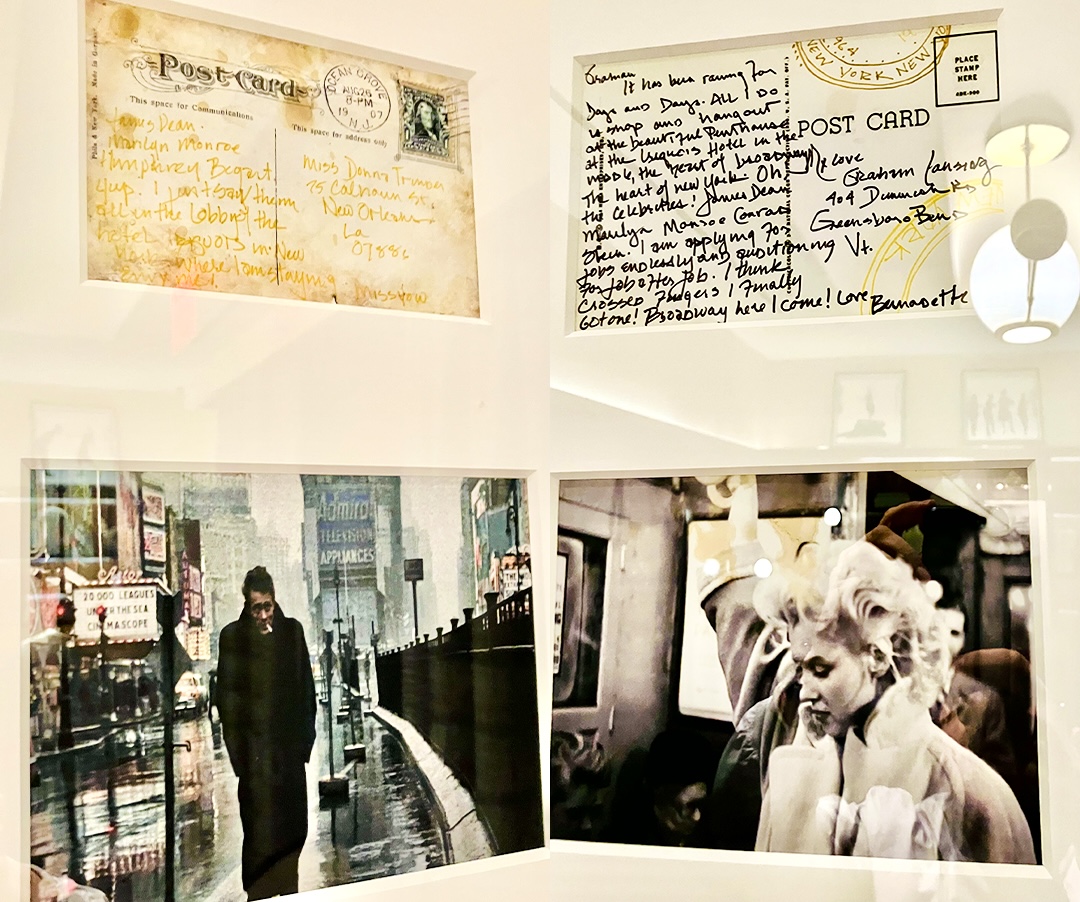 Post Card
This space for Communications
This space for address only
OCEAN GROVE
AUG 26
8-PM
19 07
N.J.
James Dean.
Marilyn Monroe
Humphrey Bogart
yup. I just say them
all in the Lobby of the
hotel Iroquois in New
York where I am staying
miss you
Miss Donna Truman
75 Calhoun St.
New Orleans
La
07886
Graman
It has been raining for
Days and Days. All I Do
is shop and hangout
at the beautiful Penthouse
at the Iroquois Hotel in the
middle, the heart of broadway
The heart of new york. Oh,
the celebrities! James Dean
Marilyn Monroe Conrad
Shein. I am applying for
jobs endlessly and auditioning
for job after job. I think
crossed fingers I finally
got one! Broadway here I come! Love Bernadette
NEW YORK NEW
PLACE
STAMP
HERE
POST CARD
Graham Lansing
404 Duncan Rd
Greensboro Bend
Vt.
Admiral
TELEVISION
APPLIANCES
Astor
20 000 LEAGUES
UNDER THE SEA
CINEMASCOPE